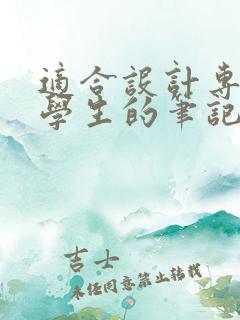 適合設計專
學生的筆記
吉士
未經同意禁止轉載